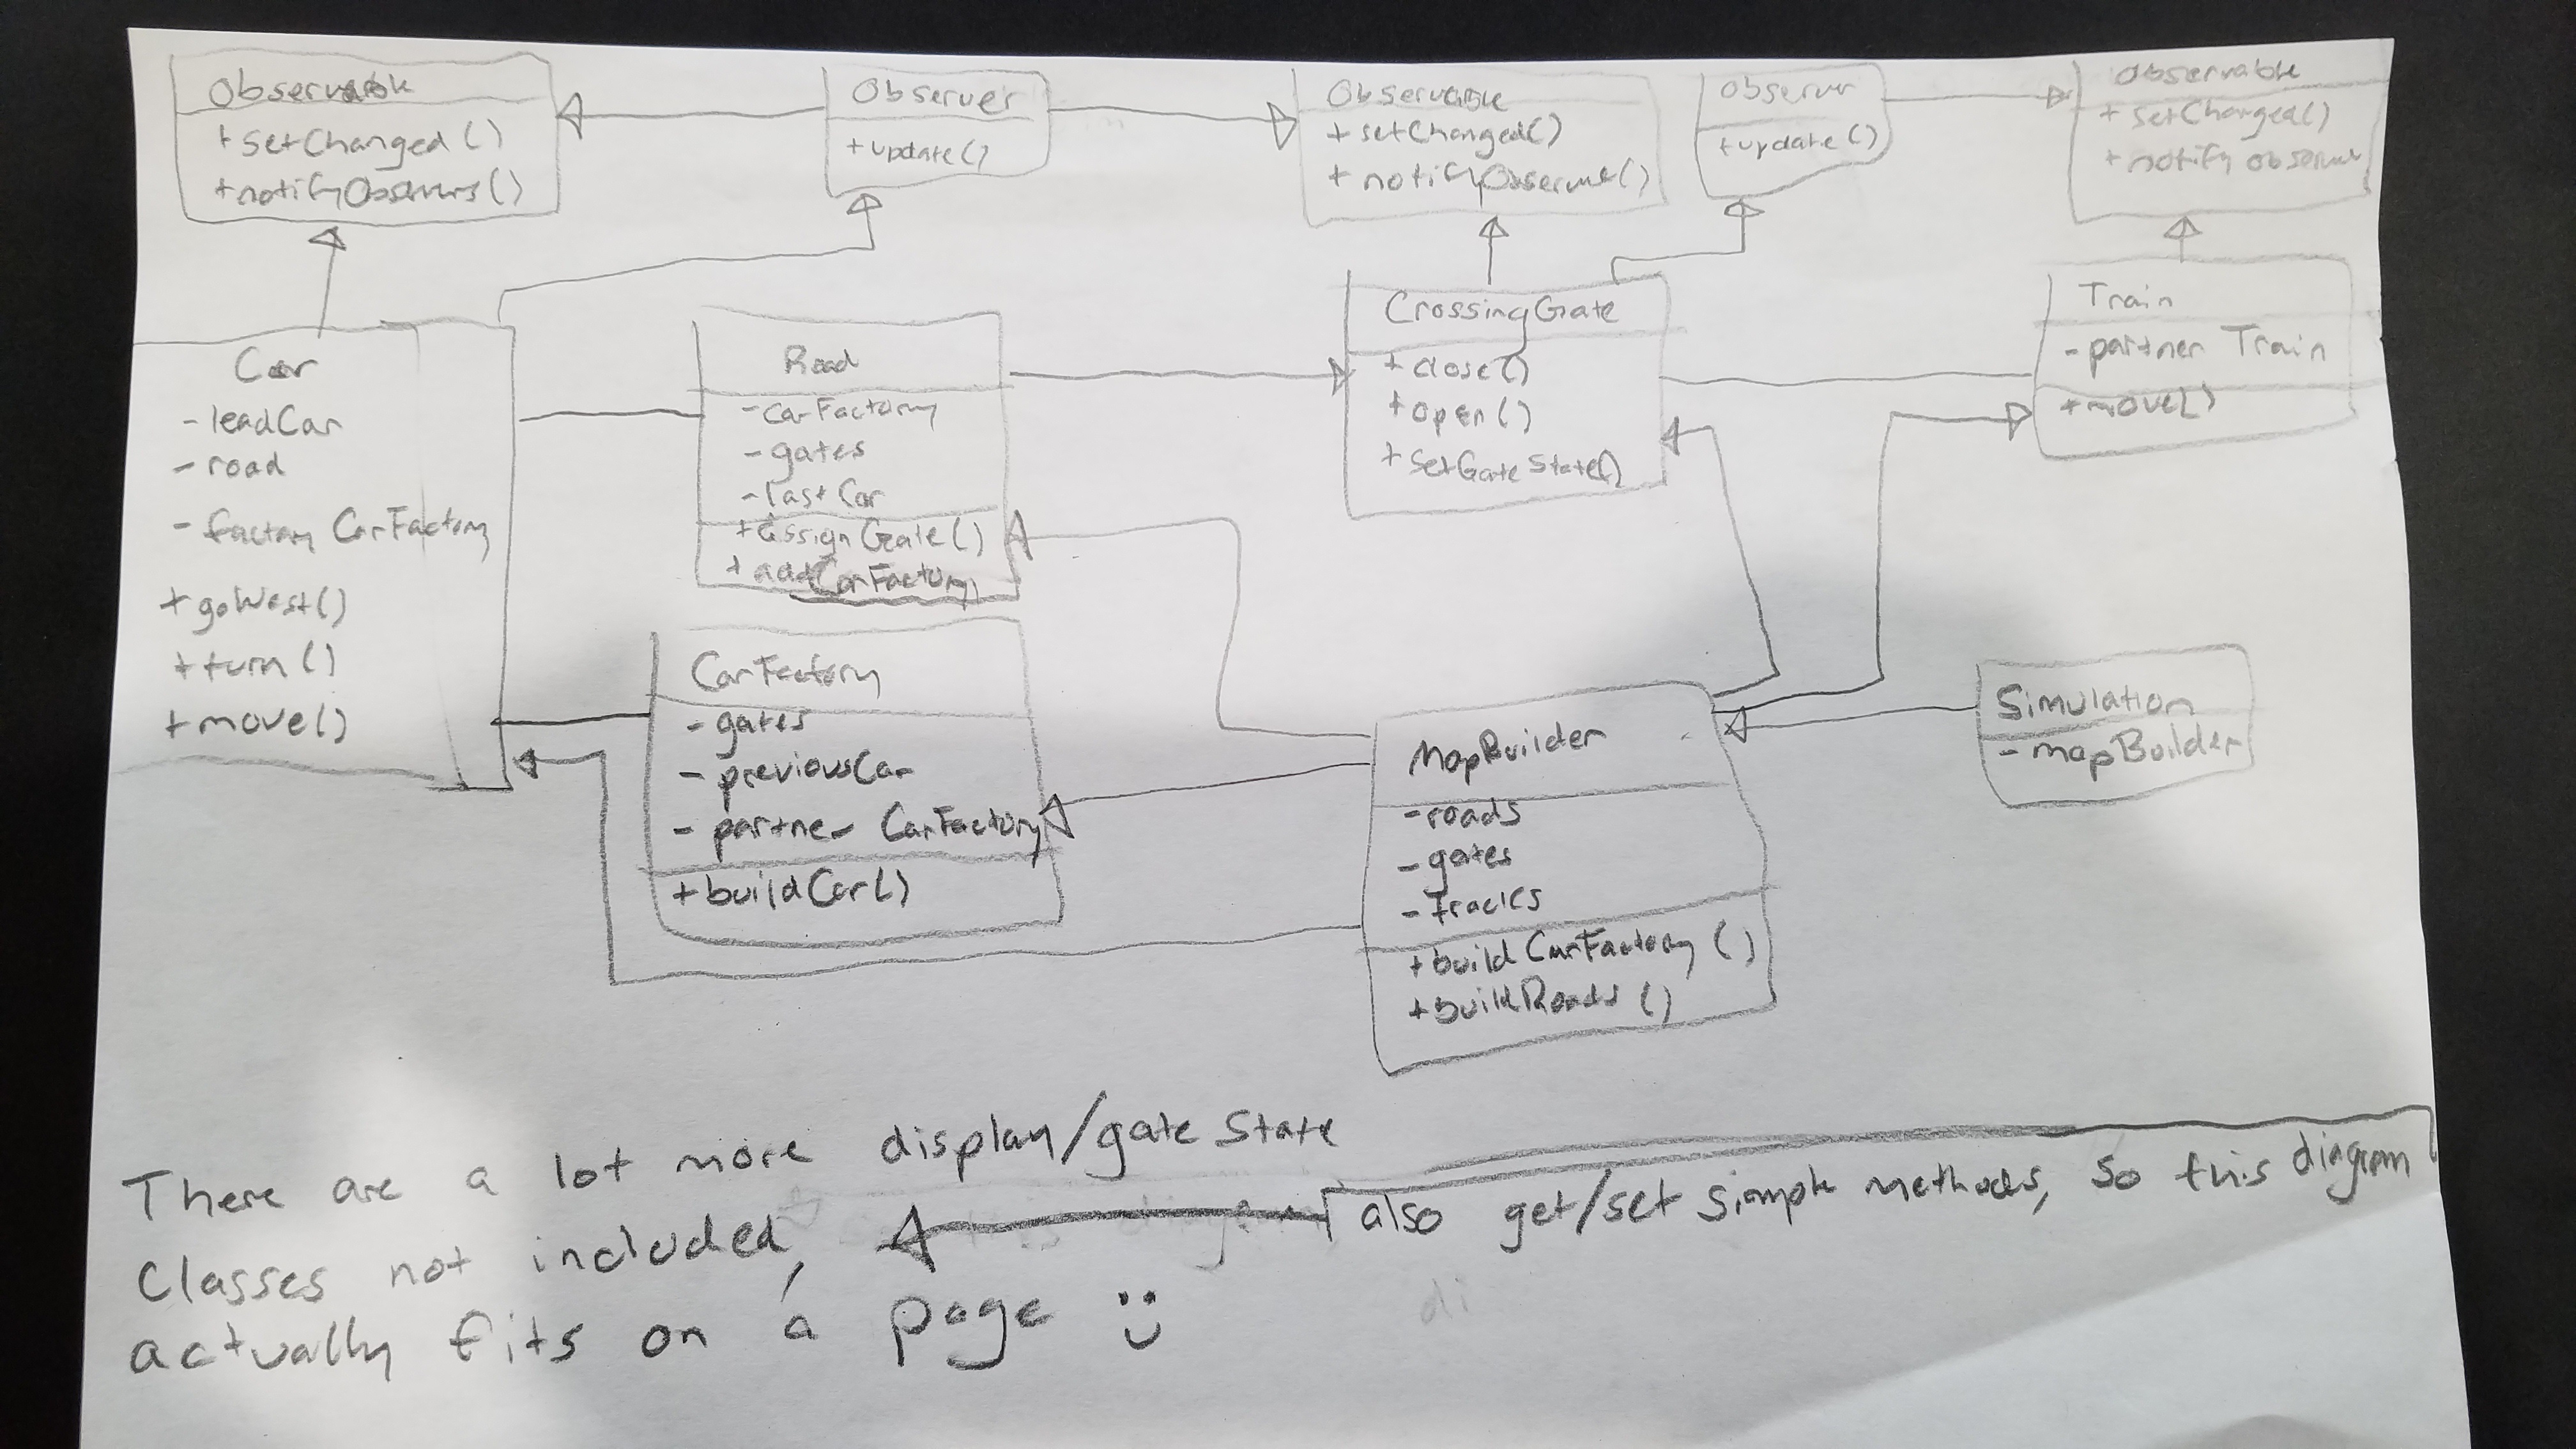 Observable
+setChanged()
+notifyObservers()
Observer
+update()
Observable
+setChanged()
+notifyObserver()
observer
+update()
Observable
+setChanged()
+notify observer
Car
-leadCar
-road
-factory CarFactory
+goWest()
+turn()
+move()
Road
-carFactory
-gates
-lastCar
+assignGate()
+addCarFactory
CrossingGate
+close()
+open()
+setGateState()
Train
-partner Train
+move()
CarFactory
-gates
-previousCar
-partner CarFactory
+buildCar()
MapBuilder
-roads
-gates
-Tracks
+buildCarFactory()
+buildRoads()
Simulation
-mapBuilder
There are a lot more display/gate State
Classes not included, also get/set simple methods, so this diagram
actually fits on a page
di